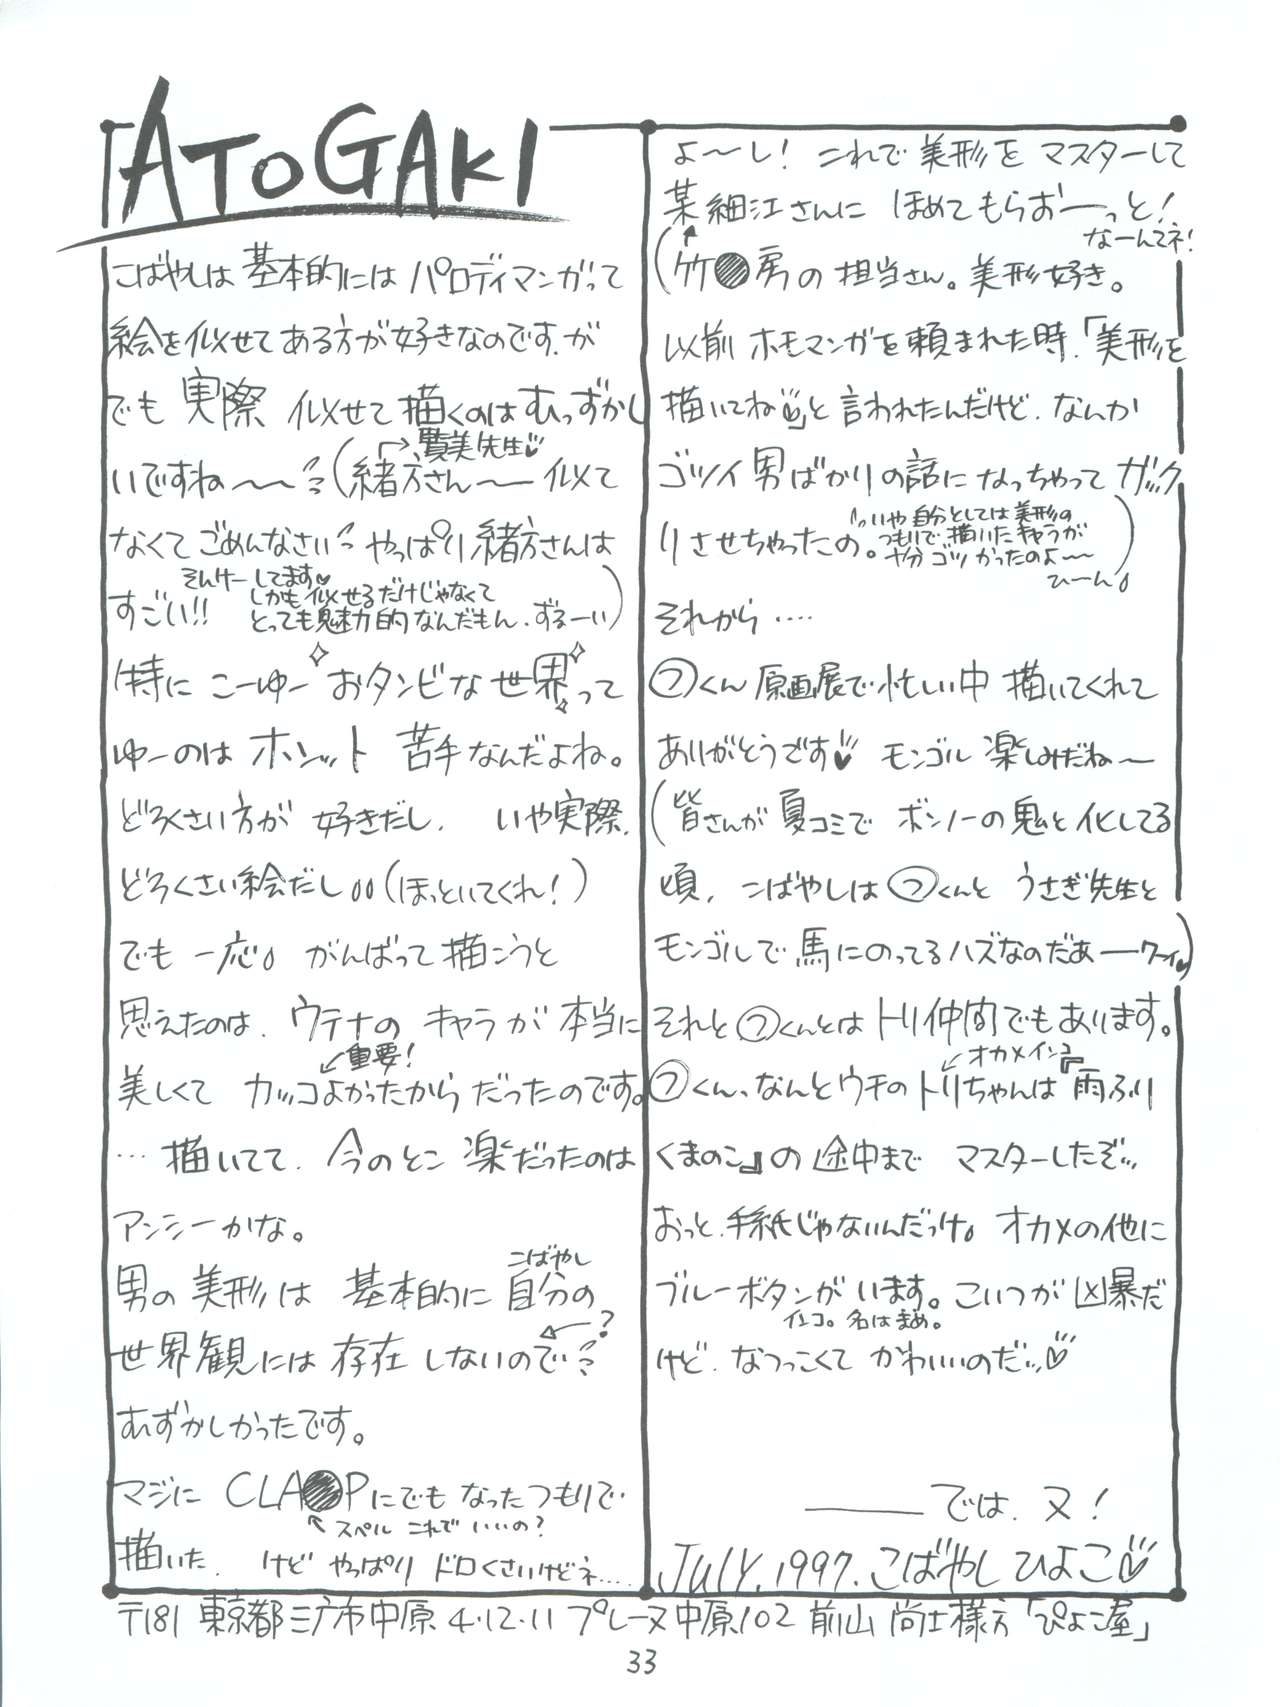 ATOGAKI
こばやしは 基本的には パロディマンガって
絵を似せてある方が好きなのです.が
でも 実際 似せて描くのは むっずかし
いですね〜〜(緒方さん〜似て
→賢美先生♡
なくてごめんなさい やっぱり緒方さんは
すごい!!
そんけーしてます♡
しかも似せるだけじゃなくて
とっても魅力的なんだもん、ずるーい)
特に こーゆー おタンビな世界って
ゆーのは ホンット 苦手なんだよね。
どろくさい方が 好きだし. いや実際.
どろくさい絵だし(ほっといてくれ!)
でも 一応 がんばって描こうと
思えたのは. ウテナの キャラが 本当に
美しくて カッコよかったからだったのです。
↙重要!
…描いてて. 今のとこ 楽だったのは
アンシーかな。
男の 美形は 基本的に 自分の
こばやし
世界観には 存在 しないので
←?
むずかしかったです。
マジに CLA●Pにでも なったつもりで
↖スペル これで いいの?
描いた. けど やっぱり ドロくさいけどネ….
よ〜し! これで美形を マスターして
某細江さんに ほめてもらおーっと!
なーんてネ!
(竹●房の 担当さん。美形好き。
以前 ホモマンガを頼まれた時.「美形を
描いてね♡」と 言われたんだけど. なんか
ゴツイ男ばかりの話に なっちゃって ガック
リさせちゃったの。
いや 自分としては 美形の
つもりで 描いた キャラが
ゴツかったのよ〜
ひーん)
それから….
㋡くん 原画展で忙しい中 描いてくれて
ありがとうです♡ モンゴル 楽しみだね〜
(皆さんが 夏コミで ボンノーの鬼と化してる
頃, こばやしは ㋡くんと うさぎ先生と
モンゴルで 馬にのってるハズなのだあーワーイ♡)
それと㋡くんとは トリ仲間でもあります。
㋡くん、なんとウチの トリちゃんは『雨ふり
↙オカメインコ
くまのこ』の 途中まで マスターしたぞ
おっと.手紙じゃないんだっけ オカメの他に
ブルーボタンがいます。こいつが 凶暴だ
インコ。名はまめ。
けど. なつっこくて かわいいのだ♡
―――では. 又!
JULY.1997.こばやし ひよこ♡
〒181 東京都三广市中原 4・12・11 プレーヌ中原102 前山 尚士様方「ぴよこ屋」
33